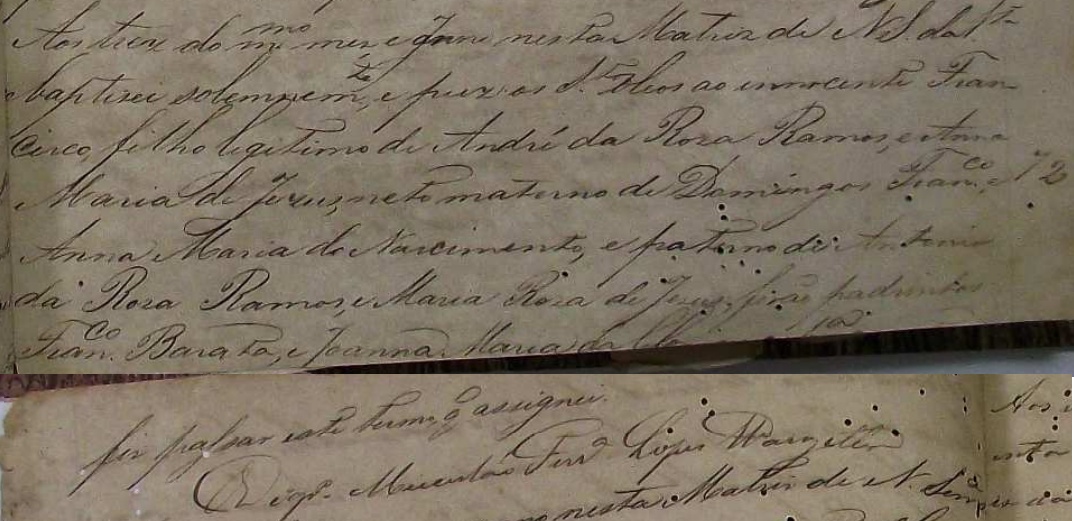 Aos treze do m.mo mez, e anno nesta Matriz de N S. da
baptizei solemnem.te, e puz os S.tos Oleos ao innocente Fran-
cisco, filho legitimo de André da Roza Ramos, e Anna
Maria de Jezus, neto materno de Domingos Fran.co e 72
Anna Maria do Nascimento, e paterno de Antonio
da Roza Ramos, e Maria Roza de Jezus, forão padrinhos
Fran.co Barata, e Joanna Maria da
fez passar este termo q assignei.
O Vigr.o Ferr.a Lopes
nesta Matriz de N. Sen